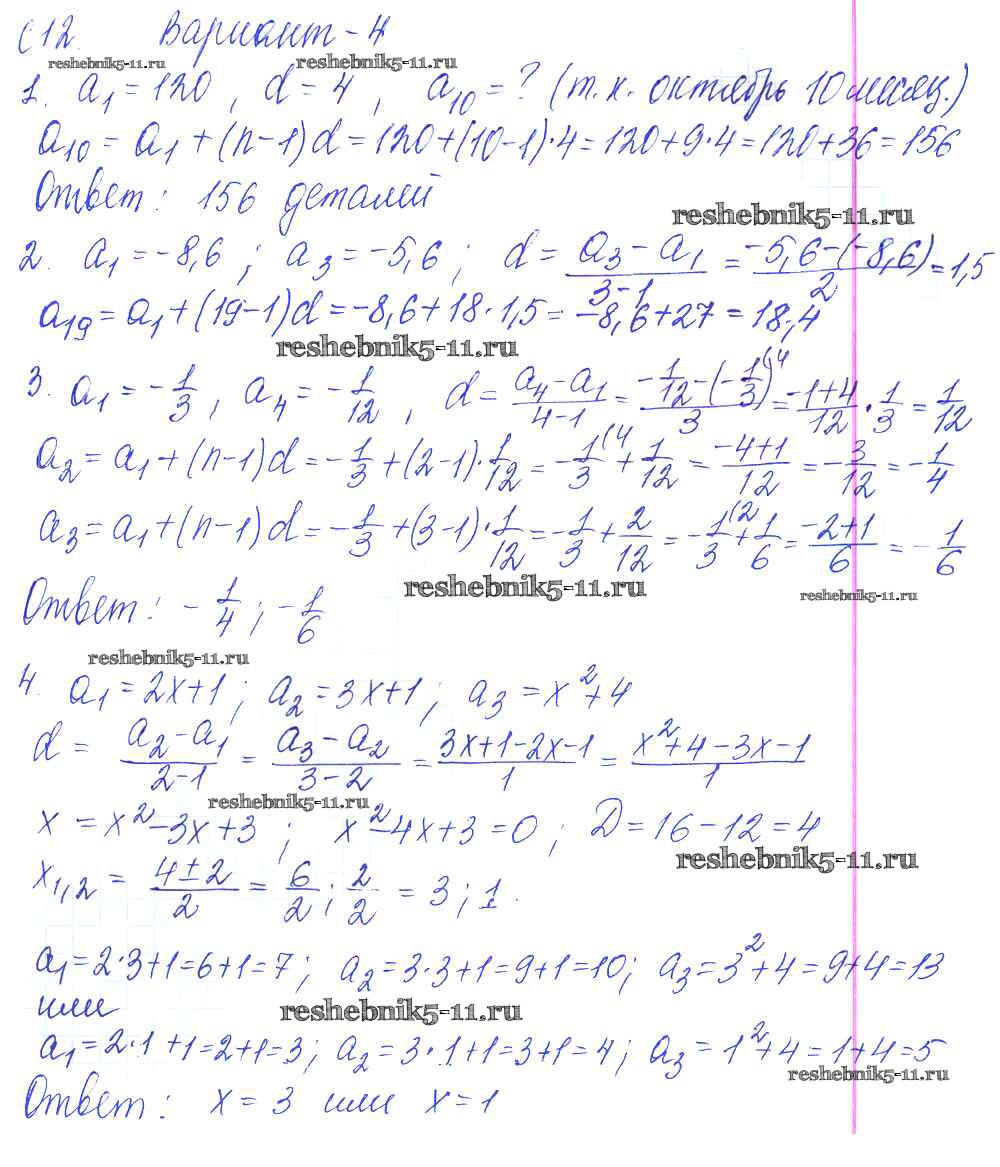 С12. Вариант-4
reshebnik5-11.ru reshebnik5-11.ru
1. a₁=120, d=4, a₁₀=? (т.к. октябрь 10 месяц.)
a₁₀=a₁+(n-1)d=120+(10-1)·4=120+9·4=120+36=156
Ответ: 156 деталей
reshebnik5-11.ru
2. a₁=-8,6; a₃=-5,6; d=(a₃-a₁)/(3-1)=(-5,6-(-8,6))/2=1,5
a₁₉=a₁+(19-1)d=-8,6+18·1,5=-8,6+27=18,4
reshebnik5-11.ru
3. a₁=-1/3, a₄=-1/12, d=(a₄-a₁)/(4-1)=(-1/12-(-1/3)⁽⁴)/3=(-1+4)/12·1/3=1/12
a₂=a₁+(n-1)d=-1/3+(2-1)·1/12=-1/3⁽⁴+1/12=(-4+1)/12=-3/12=-1/4
a₃=a₁+(n-1)d=-1/3+(3-1)·1/12=-1/3+2/12=-1/3⁽²+1/6=(-2+1)/6=-1/6
reshebnik5-11.ru reshebnik5-11.ru
Ответ: -1/4; -1/6
reshebnik5-11.ru
4. a₁=2x+1; a₂=3x+1; a₃=x²+4
d=(a₂-a₁)/(2-1)=(a₃-a₂)/(3-2)=(3x+1-2x-1)/1=(x²+4-3x-1)/1
reshebnik5-11.ru
x=x²-3x+3; x²-4x+3=0; D=16-12=4
reshebnik5-11.ru
x₁,₂=(4±2)/2=6/2; 2/2=3; 1.
a₁=2·3+1=6+1=7; a₂=3·3+1=9+1=10; a₃=3²+4=9+4=13
или
reshebnik5-11.ru
a₁=2·1+1=2+1=3; a₂=3·1+1=3+1=4; a₃=1²+4=1+4=5
reshebnik5-11.ru
Ответ: x=3 или x=1